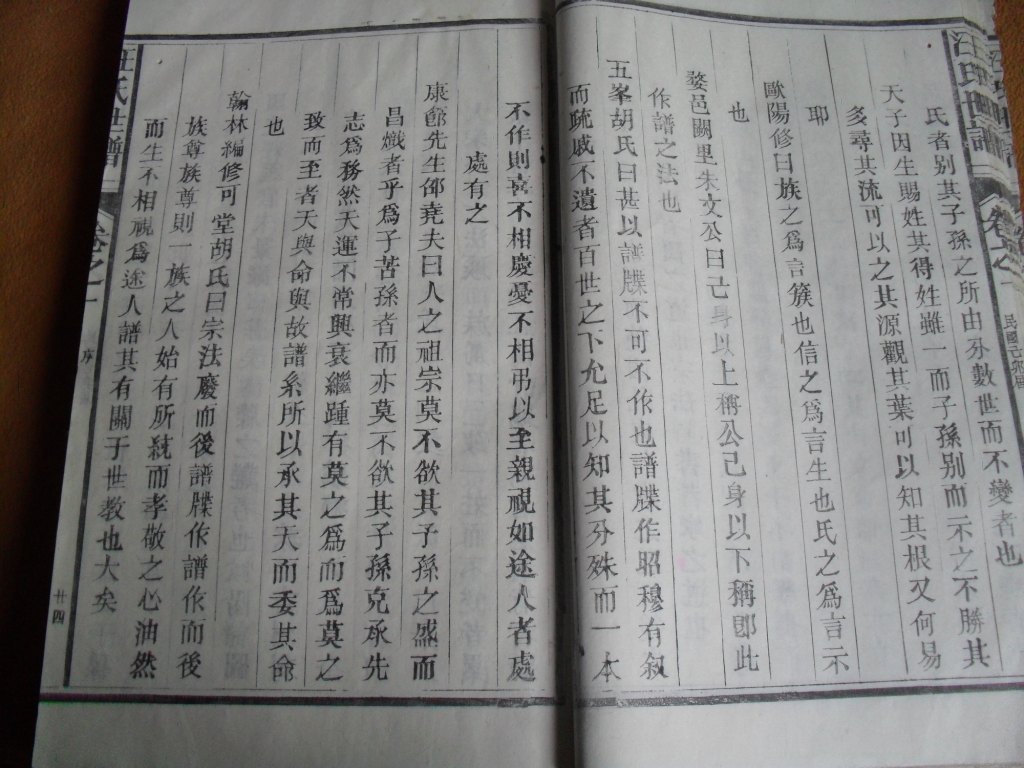 汪氏世譜
卷之一
氏者别其子孫之所由分數世而不變者也
天子因生賜姓其得姓雖一而子孫别而示之不勝其
多尋其流可以之其源觀其葉可以知其根又何易
耶
歐陽修曰族之爲言簇也信之爲言生也氏之爲言示
也
婺邑闕里朱文公曰己身以上稱公己身以下稱郎此
作譜之法也
五峯胡氏曰甚以譜牒不可不作也譜牒作昭穆有叙
而疏戚不遺者百世之下允足以知其分殊而一本
不作則喜不相慶憂不相弔以至親視如途人者處
處有之
康節先生邵堯夫曰人之祖宗莫不欲其子孫之盛而
昌熾者乎爲子若孫者而亦莫不欲其子孫克承先
志爲務然天運不常興衰繼踵有莫之爲而爲莫之
致而至者天與命與故譜系所以承其天而委其命
也
翰林編修可堂胡氏曰宗法廢而後譜牒作譜作而後
族尊族尊則一族之人始有所統而孝敬之心油然
而生不相視爲途人譜其有關于世教也大矣
汪氏世譜
卷之一
序
廿四